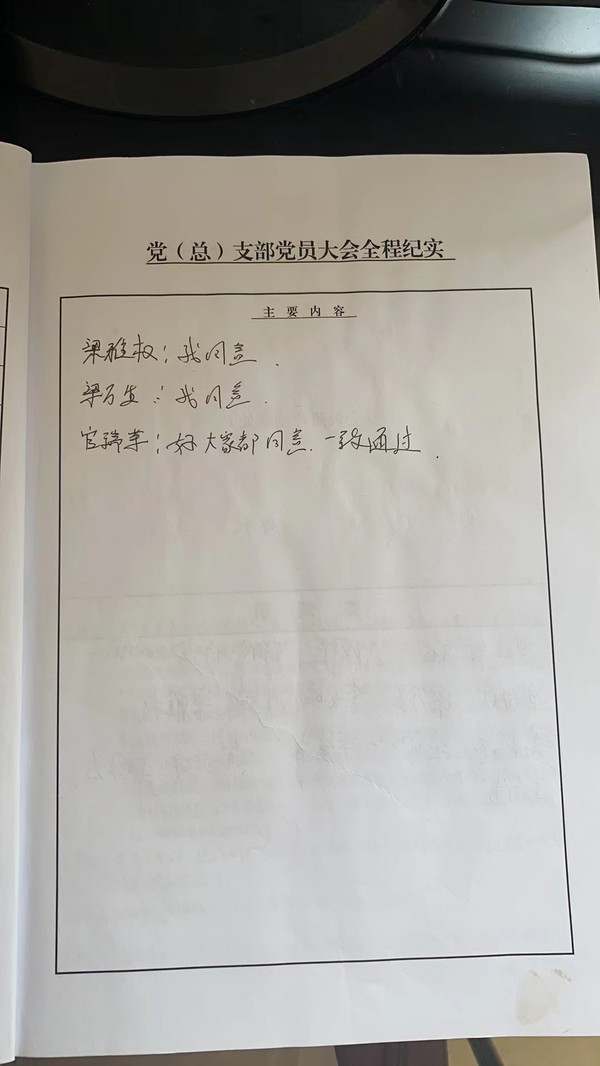 党（总）支部党员大会全程纪实
主要内容
梁雅权：我同意.
梁万生：我同意.
官瑞苹：好大家都同意.一致通过.